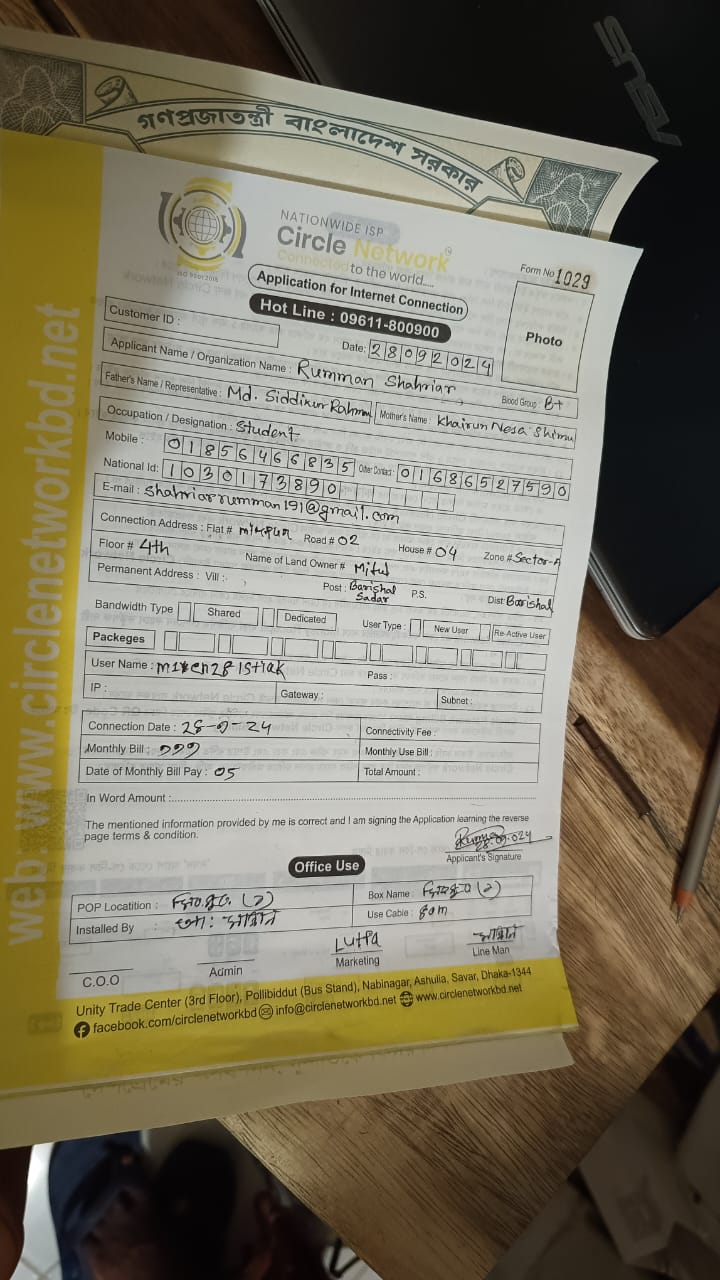 ASUS
গণপ্রজাতন্ত্রী বাংলাদেশ সরকার
web: www.circlenetworkbd.net
ISO 9001:2015
NATIONWIDE ISP
Circle Network
Connected to the world.....
Form No 1029
Application for Internet Connection
Hot Line : 09611-800900
Photo
Customer ID :
Date: 28092024
Applicant Name / Organization Name : Rumman Shahriar
Blood Group : B+
Father's Name / Representative : Md. Siddikur Rahman Mother's Name : Khairun Nesa Shimu
Occupation / Designation : Student
Mobile : 01856466835 Other Contact : 01686527590
National Id: 1030173890
E-mail : shahriarrumman191@gmail.com
Connection Address : Flat # mirpur Road # 02 House # 04 Zone # Sector-A
Floor # 4th Name of Land Owner # Mitul
Permanent Address : Vill : Post : Barishal Sadar P.S. Dist: Barishal
Bandwidth Type Shared Dedicated User Type : New User Re-Active User
Packeges
User Name : Pass :
IP : Gateway : Subnet :
Connection Date : 28-9-24 Connectivity Fee :
Monthly Bill : Monthly Use Bill :
Date of Monthly Bill Pay : 05 Total Amount :
In Word Amount :
The mentioned information provided by me is correct and I am signing the Application learning the reverse
page terms & condition.
Applicant's Signature
Office Use
POP Locatition : Box Name :
Installed By Use Cable :
C.O.O
Admin
Lutfa
Marketing
Line Man
Unity Trade Center (3rd Floor), Pollibiddut (Bus Stand), Nabinagar, Ashulia, Savar, Dhaka-1344
facebook.com/circlenetworkbd info@circlenetworkbd.net www.circlenetworkbd.net